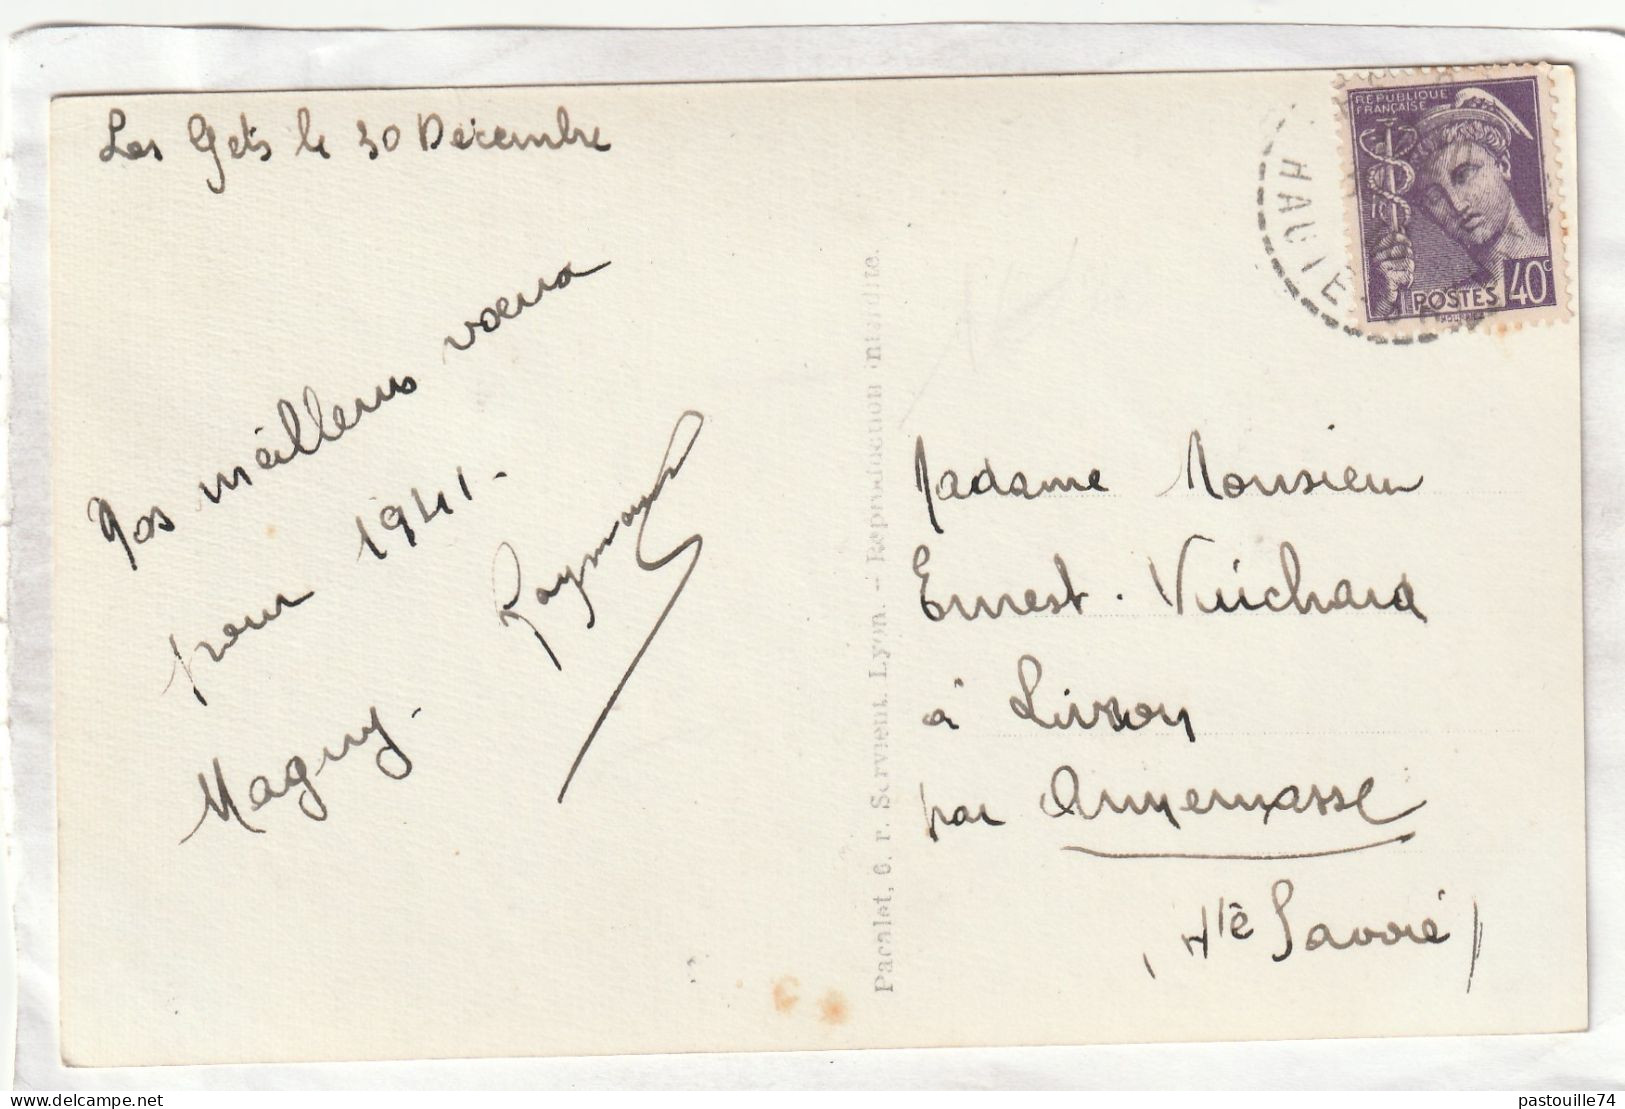 Les Gets le 30 Décembre
Nos meilleurs voeux
pour 1941.
Raymond
Maguy.
Pacalet, 6, r. Servient, Lyon. – Reproduction interdite.
RÉPUBLIQUE
FRANÇAISE
POSTES 40c
HAUTE
Madame Monsieur
Ernest. Vuichard
à Livron
par Annemasse
(Hte Savoie)
pastouille74